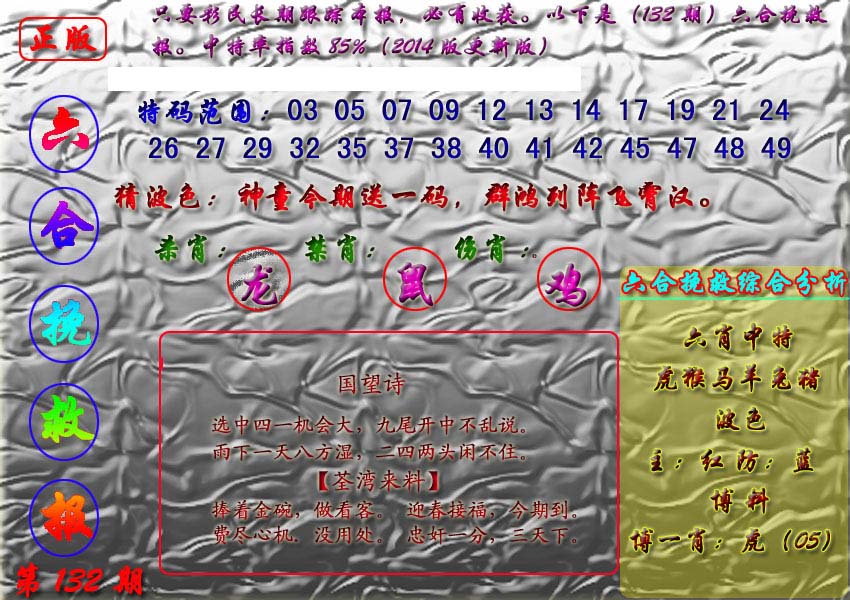 正版
只要彩民长期跟踪本报，必有收获。以下是（132期）六合挽救
报。中特率指数85%（2014版更新版）
六合挽救报
第132期
特码范围：03 05 07 09 12 13 14 17 19 21 24
26 27 29 32 35 37 38 40 41 42 45 47 48 49
猜波色：神童今期送一码，群鸿到阵飞霄汉。
杀肖：龙 禁肖：鼠 伤肖：鸡
国望诗
选中四一机会大，九尾开中不乱说。
雨下一天八方湿，二四两头闲不住。
【荃湾来料】
捧着金碗，做看客。 迎春接福，今期到。
费尽心机．没用处。 忠奸一分，三天下。
六合挽救综合分析
六肖中特
虎猴马羊兔猪
波色
主：红防：蓝
博料
博一肖：虎（05）